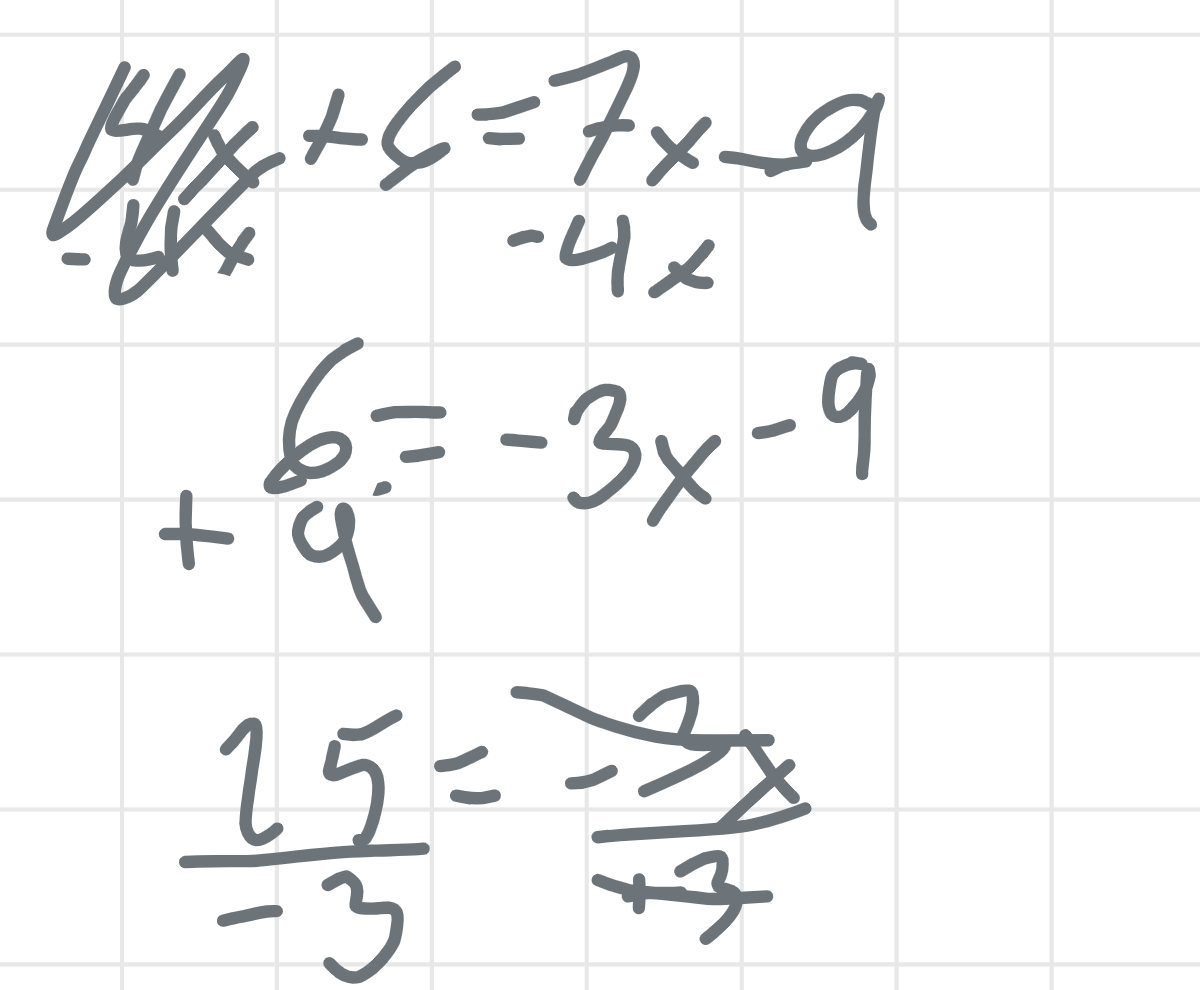 4x + 6 = 7x - 9
- 4x - 4x
6 = - 3x - 9
+ 9
15 = - 3x
- 3 + 3